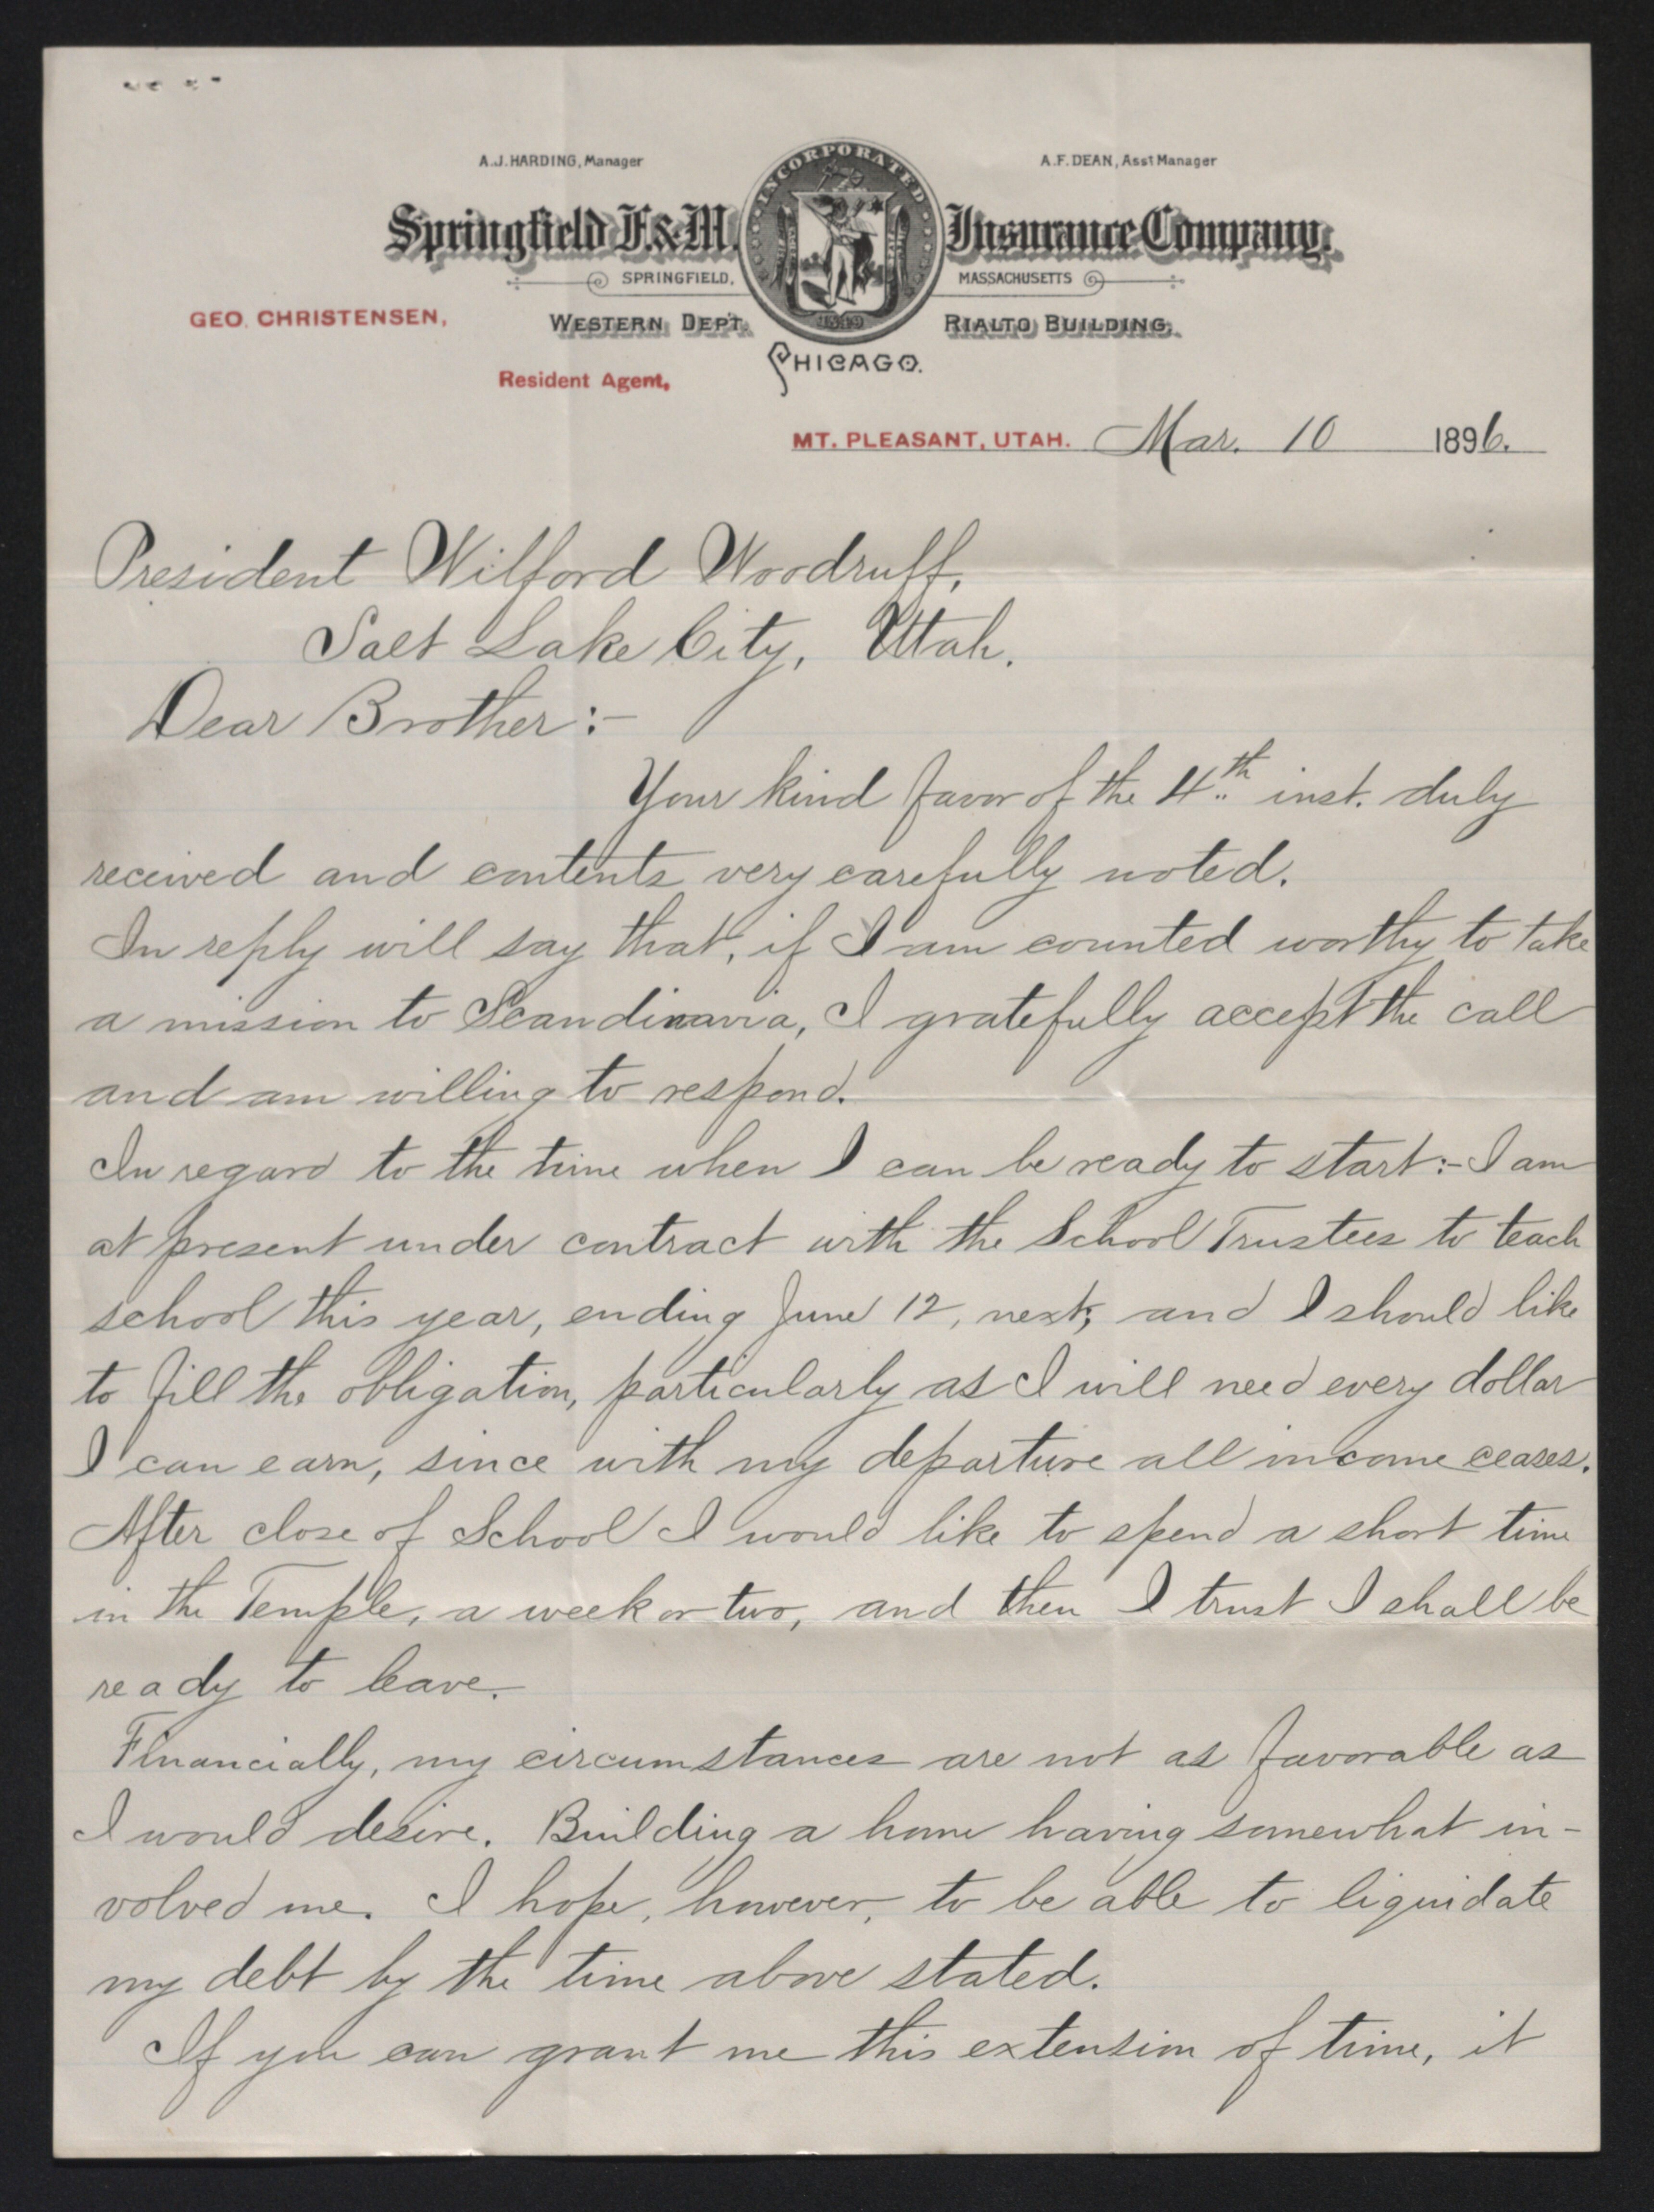 A.J. HARDING, Manager
A.F. DEAN, Asst Manager
INCORPORATED
Springfield F. & M. Insurance Company.
SPRINGFIELD, MASSACHUSETTS
1849
GEO. CHRISTENSEN,
WESTERN DEP'T. RIALTO BUILDING,
CHICAGO.
Resident Agent,
MT. PLEASANT, UTAH. Mar. 10 1896.
President Wilford Woodruff,
Salt Lake City, Utah.
Dear Brother:-
Your kind favor of the 4th inst. duly
received and contents very carefully noted.
In reply will say that, if I am counted worthy to take
a mission to Scandinavia, I gratefully accept the call
and am willing to respond.
In regard to the time when I can be ready to start:- I am
at present under contract with the School Trustees to teach
school this year, ending June 12, next, and I should like
to fill the obligation, particularly as I will need every dollar
I can earn, since with my departure all income ceases.
After close of School I would like to spend a short time
in the Temple, a week or two, and then I trust I shall be
ready to leave.
Financially, my circumstances are not as favorable as
I would desire. Building a home having somewhat in-
volved me. I hope, however, to be able to liquidate
my debt by the time above stated.
If you can grant me this extension of time, it